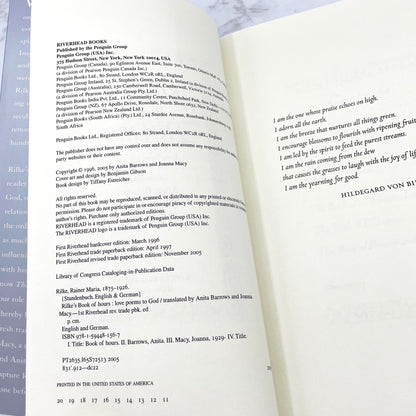 RIVERHEAD BOOKS
Published by the Penguin Group
Penguin Group (USA) Inc.
375 Hudson Street, New York, New York 10014, USA
Penguin Group (Canada), 90 Eglinton Avenue East, Suite 700, Toronto, Ontario
(a division of Pearson Penguin Canada Inc.)
Penguin Books Ltd., 80 Strand, London WC2R 0RL, England
Penguin Group Ireland, 25 St. Stephen's Green, Dublin 2, Ireland
(a division of Penguin Books Ltd.)
Penguin Group (Australia), 250 Camberwell Road, Camberwell, Victoria
(a division of Pearson Australia Group Pty. Ltd.)
Penguin Books India Pvt. Ltd., 11 Community Centre, Panchsheel Park, New Delhi
Penguin Group (NZ), 67 Apollo Drive, Rosedale, North Shore
(a division of Pearson New Zealand Ltd.)
Penguin Books (South Africa) (Pty.) Ltd., 24 Sturdee Avenue, Rosebank, Johannesburg
South Africa
Penguin Books Ltd., Registered Offices: 80 Strand, London WC2R 0RL, England
The publisher does not have any control over and does not assume any responsibility
party websites or their content.
Copyright © 1996, 2005 by Anita Barrows and Joanna Macy
Cover art and design by Benjamin Gibson
Book design by Tiffany Estreicher
All rights reserved.
No part of this book may be reproduced, scanned, or distributed in any printed or electronic form
permission. Please do not participate in or encourage piracy of copyrighted materials in
author's rights. Purchase only authorized editions.
RIVERHEAD is a registered trademark of Penguin Group (USA) Inc.
The RIVERHEAD logo is a trademark of Penguin Group (USA) Inc.
First Riverhead hardcover edition: March 1996
First Riverhead trade paperback edition: April 1997
First Riverhead revised trade paperback edition: November 2005
Library of Congress Cataloging-in-Publication Data
Rilke, Rainer Maria, 1875–1926.
[Stundenbuch. English & German]
Rilke's Book of hours : love poems to God / translated by Anita Barrows and Joanna
Macy—1st Riverhead rev. trade pbk. ed
p. cm.
English and German.
ISBN 978-1-59448-156-7
I. Title: Book of hours. II. Barrows, Anita. III. Macy, Joanna, 1929- IV. Title.
PT2635.I65S7213 2005
831'.912—dc22
PRINTED IN THE UNITED STATES OF AMERICA
20 19 18 17 16 15 14 13 12 11
I am the one whose praise echoes on high.
I adorn all the earth.
I am the breeze that nurtures all things green.
I encourage blossoms to flourish with ripening fruits
I am led by the spirit to feed the purest streams.
I am the rain coming from the dew
that causes the grasses to laugh with the joy of life
I am the yearning for good.
HILDEGARD VON BI